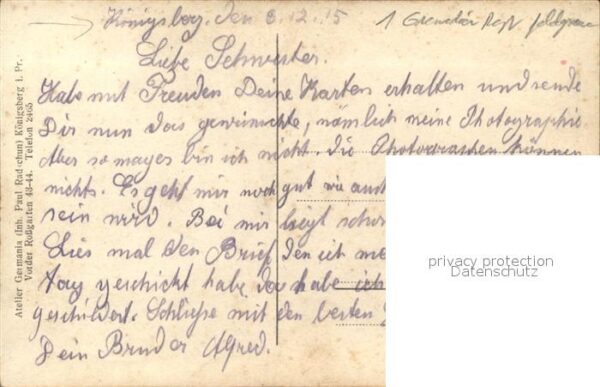 Königsberg, den 8.12.15
1 Grenadier Regt feldgrau
Liebe Schwester.
Habe mit Freuden Deine Karten erhalten und sende
Dir nun das gewünschte, nämlich meine Photographie
Aber so mager bin ich nicht. Die Photographen können
nichts. Es geht mir noch gut wie auch
sein wird. Bei mir liegt schon
Lies mal den Brief den ich
Tag geschickt habe da habe ich
geschildert. Schließe mit den besten
Dein Bruder Alfred.
Atelier Germania (Inh. Paul Radschun) Königsberg i. Pr.
Vorder Roßgarten 43-44. Telefon 2465
privacy protection
Datenschutz